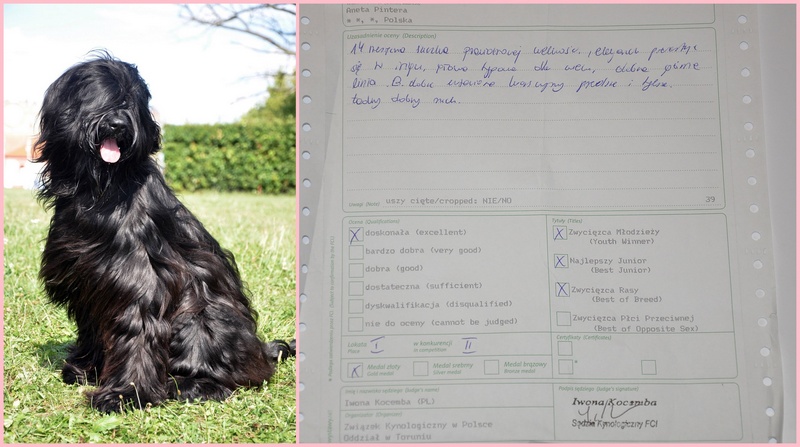 Aneta Pintera
Polska
Uzasadnienie oceny (Description)
14 suczka prawidłowej wielkości,
się w ringu, głowa typowa dla wieku, dobra górna
linia. B. dobre kątowanie kończyny przednie i tylne.
ładny dobry ruch.
Uwagi (Note) uszy cięte/cropped: NIE/NO 39
Ocena (Qualifications)
X doskonała (excellent)
bardzo dobra (very good)
dobra (good)
dostateczna (sufficient)
dyskwalifikacja (disqualified)
nie do oceny (cannot be judged)
Tytuły (Titles)
X Zwycięzca Młodzieży
(Youth Winner)
X Najlepszy Junior
(Best Junior)
X Zwycięzca Rasy
(Best of Breed)
Zwycięzca Płci Przeciwnej
(Best of Opposite Sex)
Lokata I w konkurencji II
Place in competition
Certyfikaty (Certificates)
X Medal złoty Medal srebrny Medal brązowy
Gold medal Silver medal Bronze medal
(Judge's name)
Iwona Kocemba (PL)
Organizator (Organizer)
Związek Kynologiczny w Polsce
Oddział w Toruniu
Podpis sędziego (Judge's signature)
Iwona Kocemba
Sędzia Kynologiczny FCI